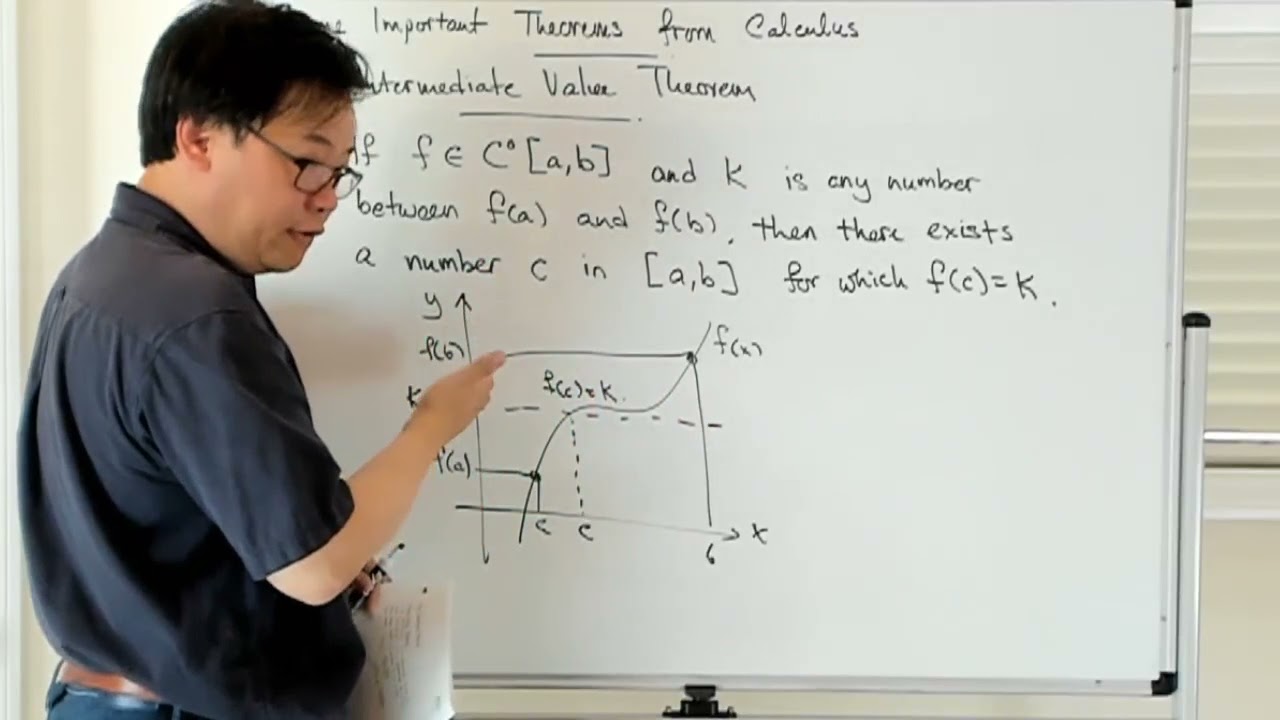 Important Theorems from Calculus
Intermediate Value Theorem
If f ∈ C⁰ [a,b] and K is any number
between f(a) and f(b), then there exists
a number c in [a,b] for which f(c)=K.
y
f(b)
f(x)
f(c)=K.
K
f(a)
a c b x